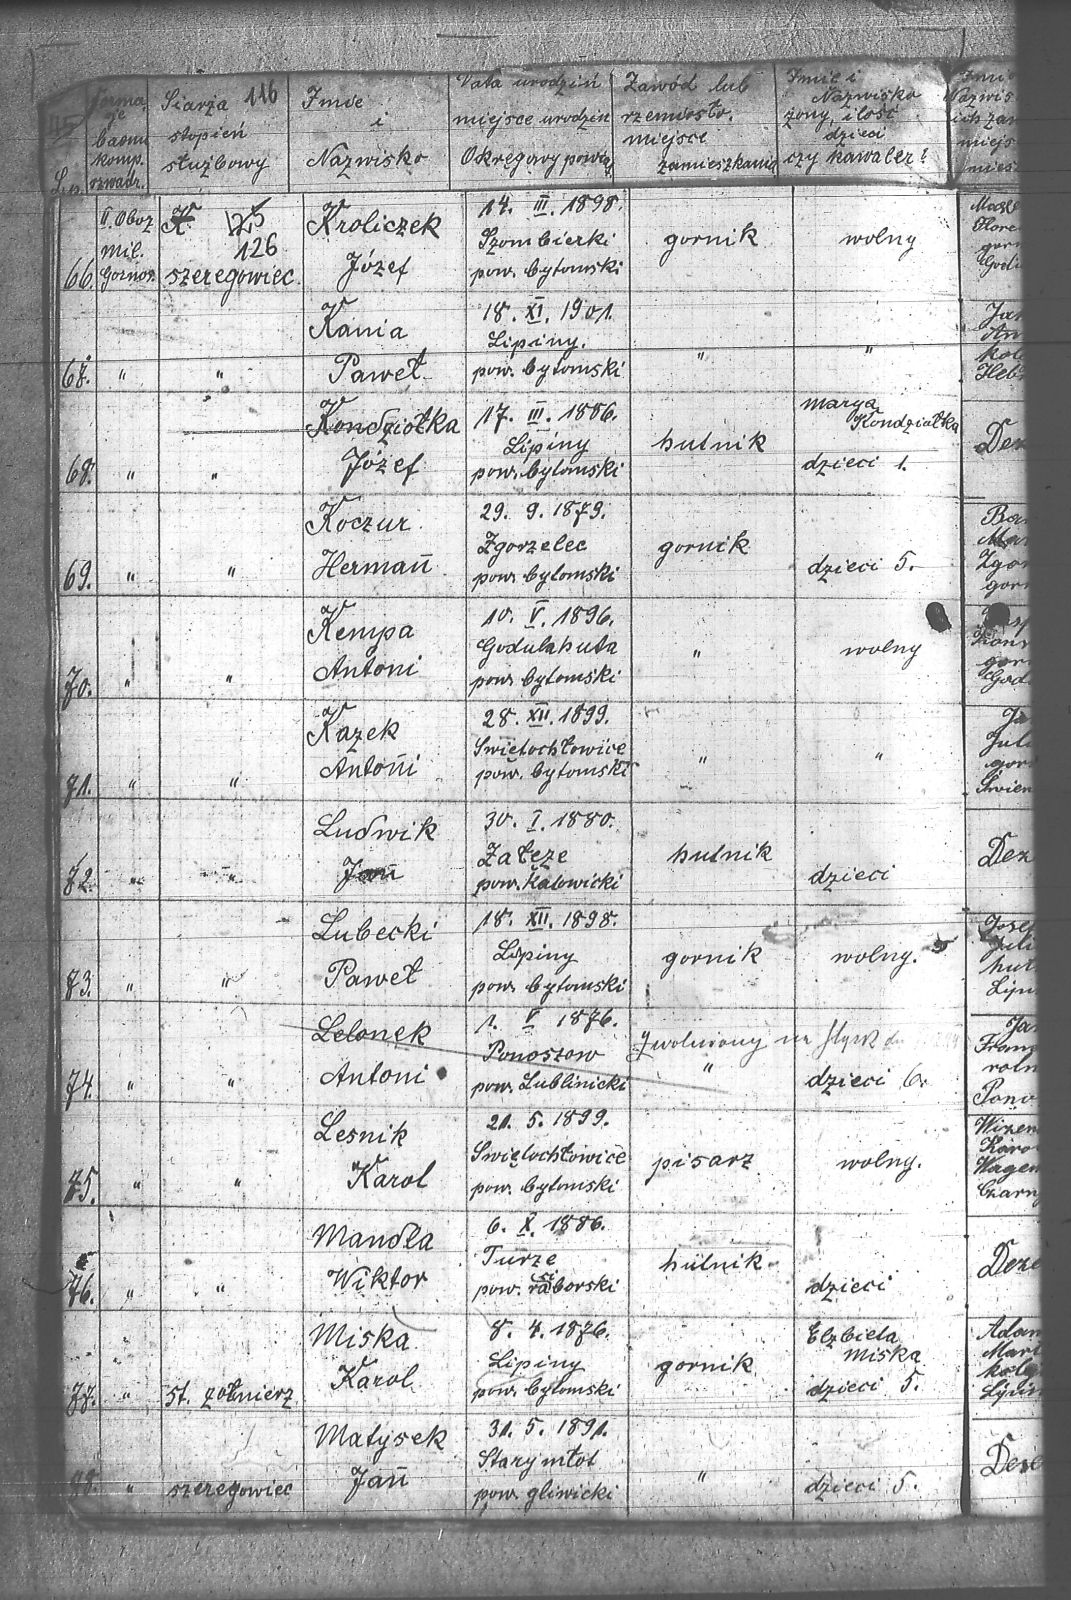 115
Lp.
Forma
baonu
komp.
szwadr.
Szarża 116
stopień
służbowy
Imie
i
Nazwisko
Data urodzin
miejsce urodzin
Okręgowy powiat
Zawód lub
rzemiosło.
miejsce
zamieszkania
Imie i
Nazwisko
żony, ilość
dzieci
czy kawaler?
66.
II. Oboz
Mil.
Gornosz.
K. 125
126
szeregowiec
Kroliczek
Józef
14. III. 1898.
Szombierki
pow. bytomski
gornik
wolny
68. " "
Kania
Paweł
18. XI. 1901.
Lipiny.
pow. bytomski
" "
68. " "
Kondziołka
Józef
17. III. 1886.
Lipiny
pow. bytomski
hutnik
Marya
Kondziałka
dzieci 1.
69. " "
Koczur
Hermañ
29. 9. 1879.
Zgorzelec
pow. bytomski
gornik
dzieci 5.
70. " "
Kempa
Antoni
10. V. 1896.
Godulahuta
pow. bytomski
"
wolny
71. " "
Kazek
Antoni
28. XII. 1899.
Swiętochłowice
pow. bytomski
" "
72. " "
Ludwik
Jañ
30. I. 1880.
Załęze
pow. Katowicki
hutnik
dzieci
73. " "
Lubecki
Paweł
18. XII. 1898.
Lipiny
pow. bytomski
gornik
wolny.
74. " "
Lelonek
Antoni
1. V 1876.
Ponoszow
pow. Lublinicki
Zwolniony na
"
dzieci 6.
75. " "
Lesnik
Karol
21. 5. 1899.
Swiętochłowice
pow. bytomski
pisarz
wolny.
76. " "
Mandla
Wiktor
6. X. 1886.
Turze
pow. raciborski
hutnik
dzieci
77. "
st. żołnierz
Miska
Karol
8. 4. 1876.
Lipiny
pow. bytomski
gornik
Elzbieta
Miska
dzieci 5.
78. "
szeregowiec
Matysek
Jañ
31. 5. 1891.
Starymłot
pow. gliwicki
"
dzieci 5.